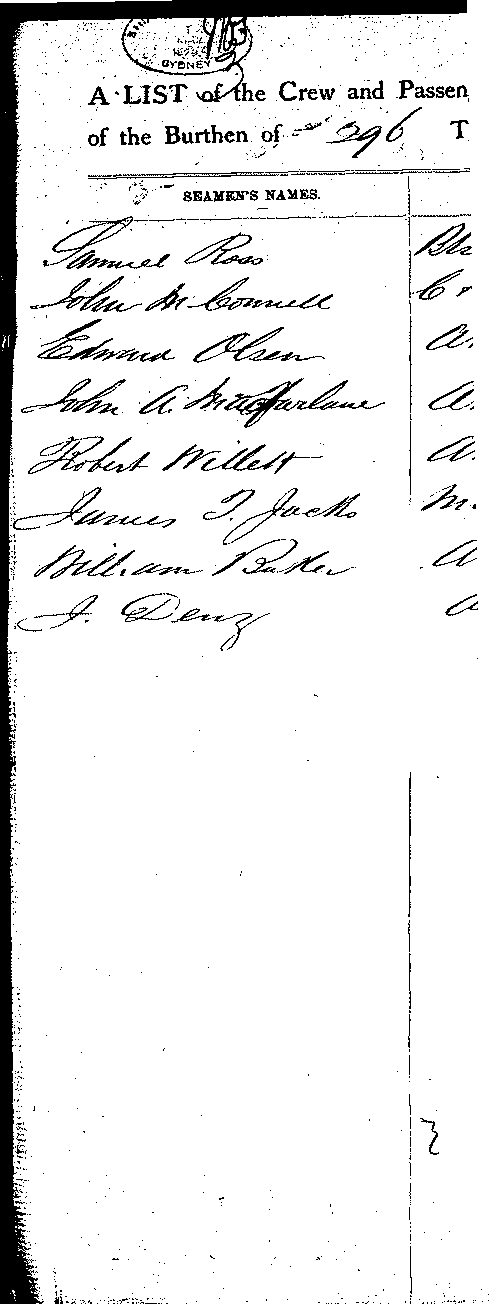 SYDNEY
A LIST of the Crew and Passen
of the Burthen of 296 T
SEAMEN'S NAMES.
Samuel Ross
John McConnell
Edmund Olsen A.
John A. Macfarlane A.
Robert Willett A.
James T. Jacks M.
William Baker A
J. Denz A